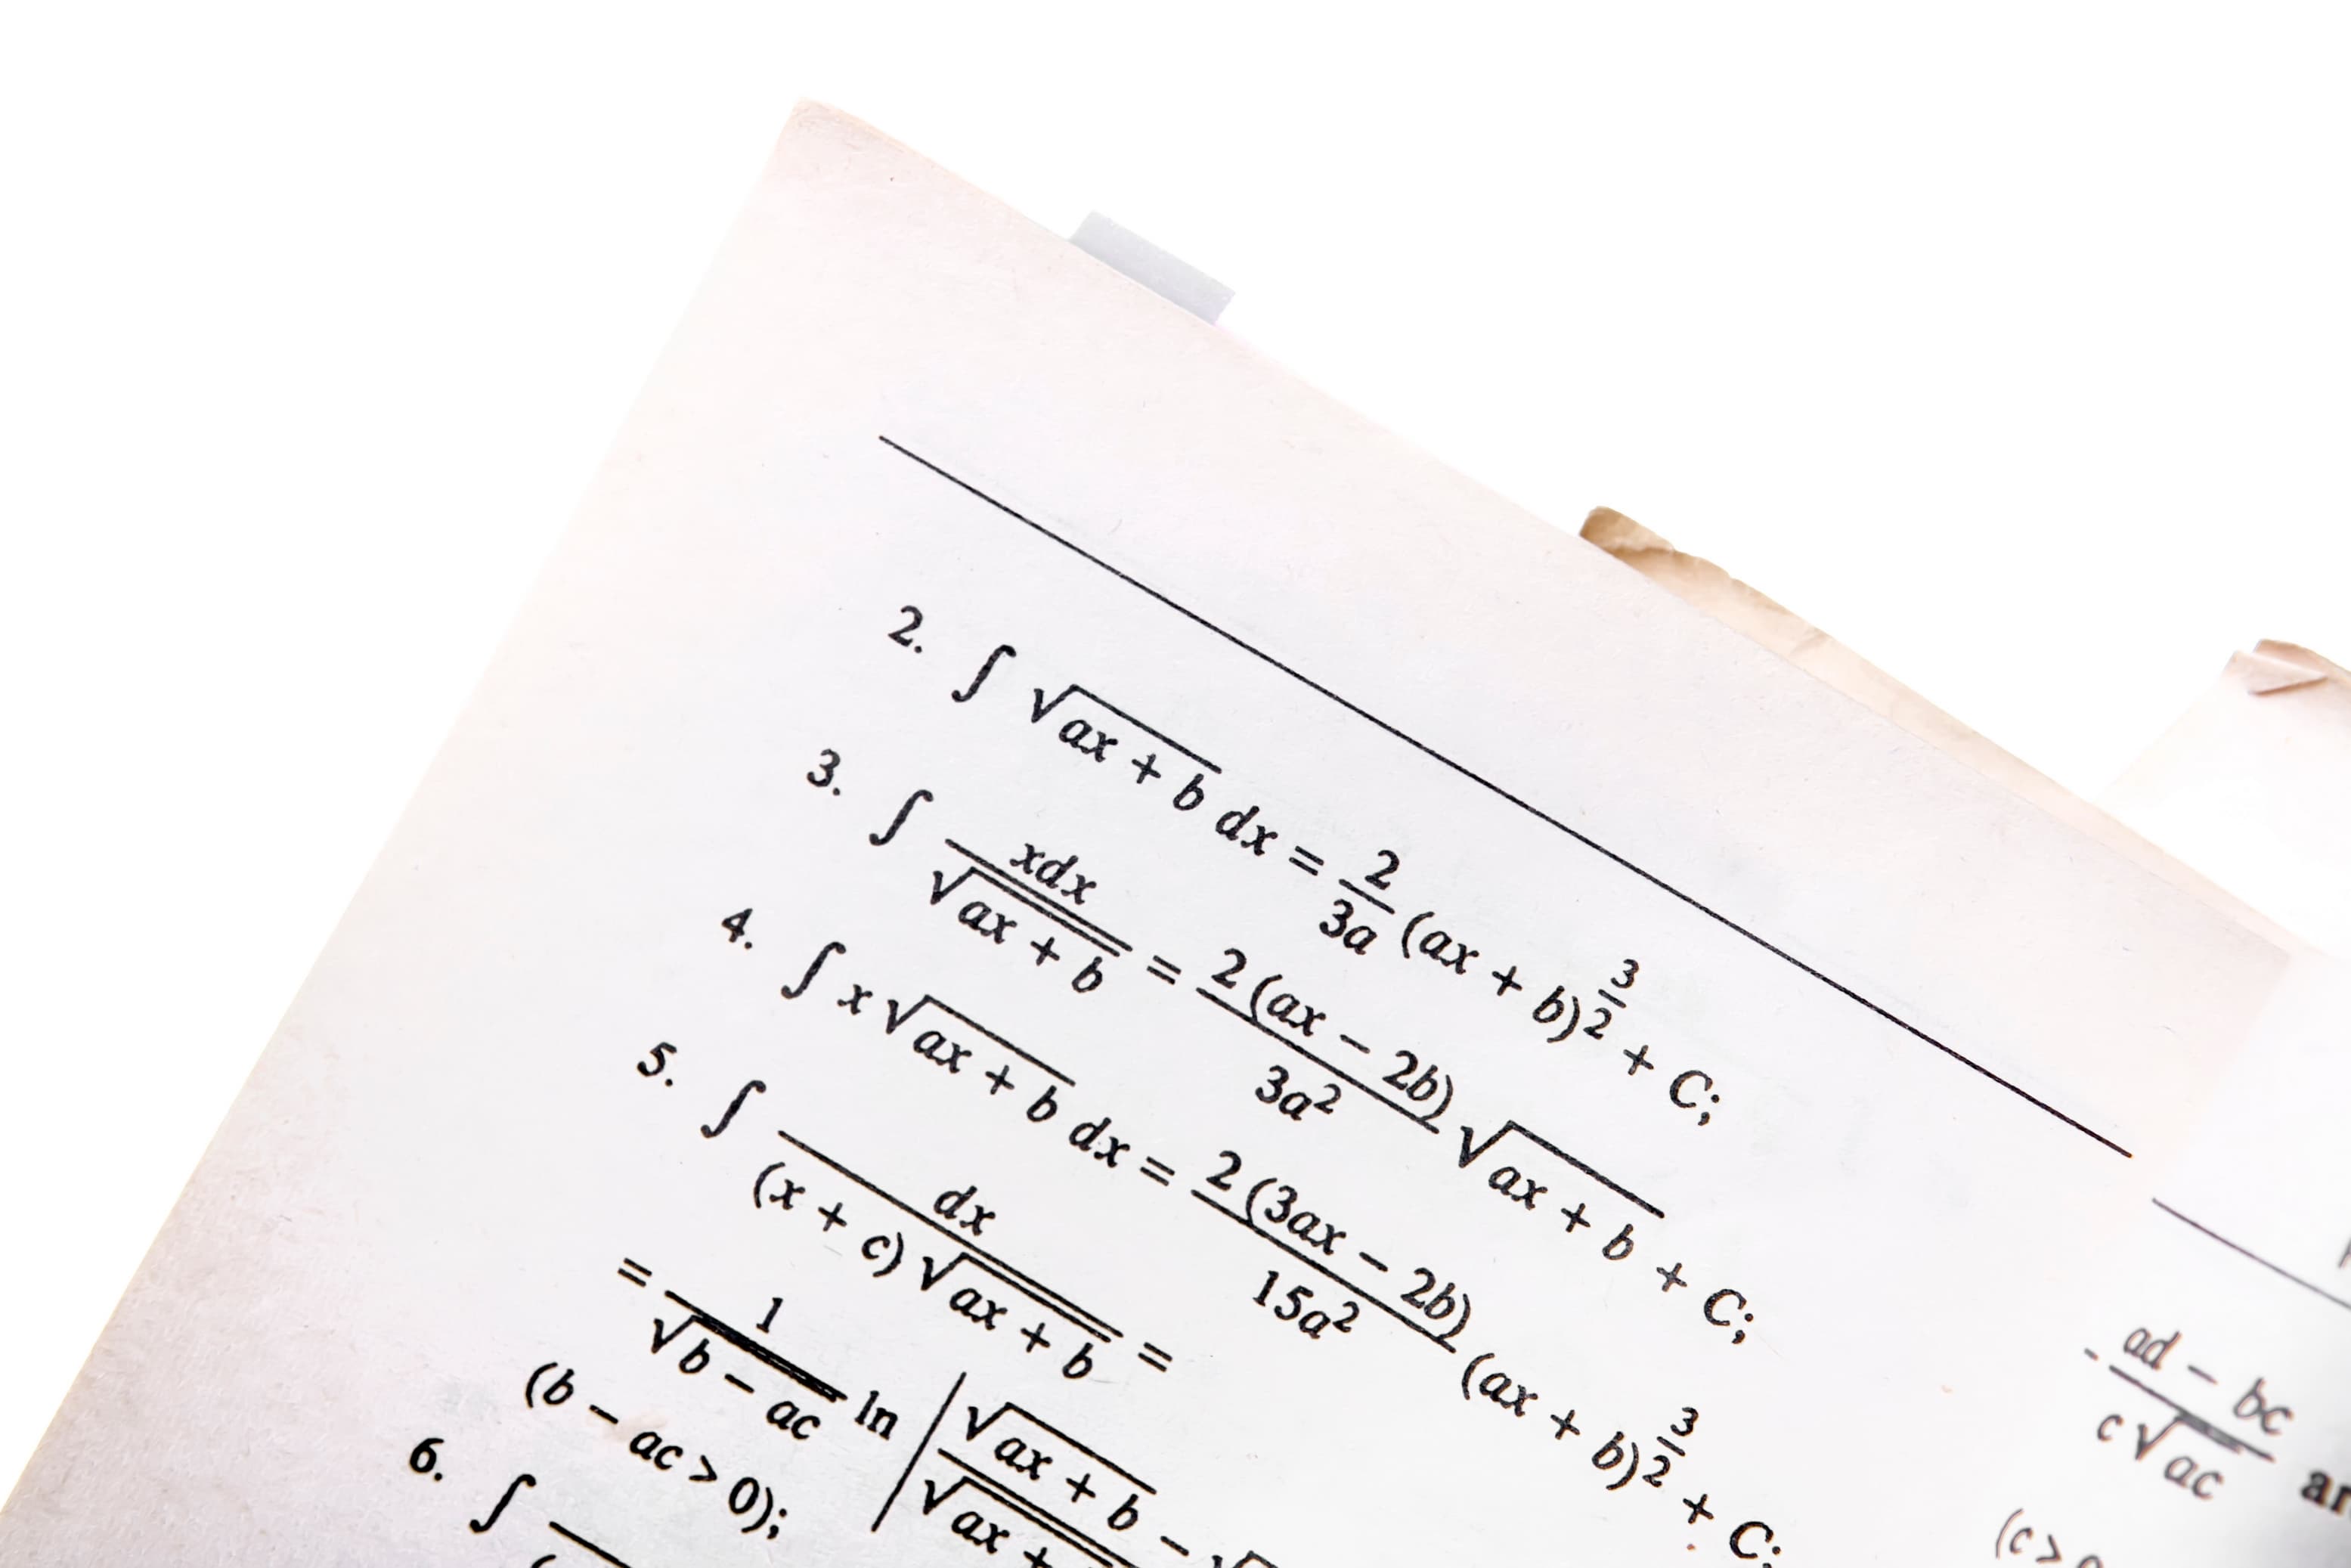 2. ∫ √(ax + b) dx = 2/3a (ax + b)^(3/2) + C;
3. ∫ xdx/√(ax + b) = 2(ax − 2b)/3a² √(ax + b) + C;
4. ∫ x√(ax + b) dx = 2(3ax − 2b)/15a² (ax + b)^(3/2) + C;
5. ∫ dx/((x + c)√(ax + b)) =
= 1/√(b − ac) ln |√(ax + b) − √ / √(ax +
(b − ac > 0);
6. ∫
ad − bc / c√ac
(c >